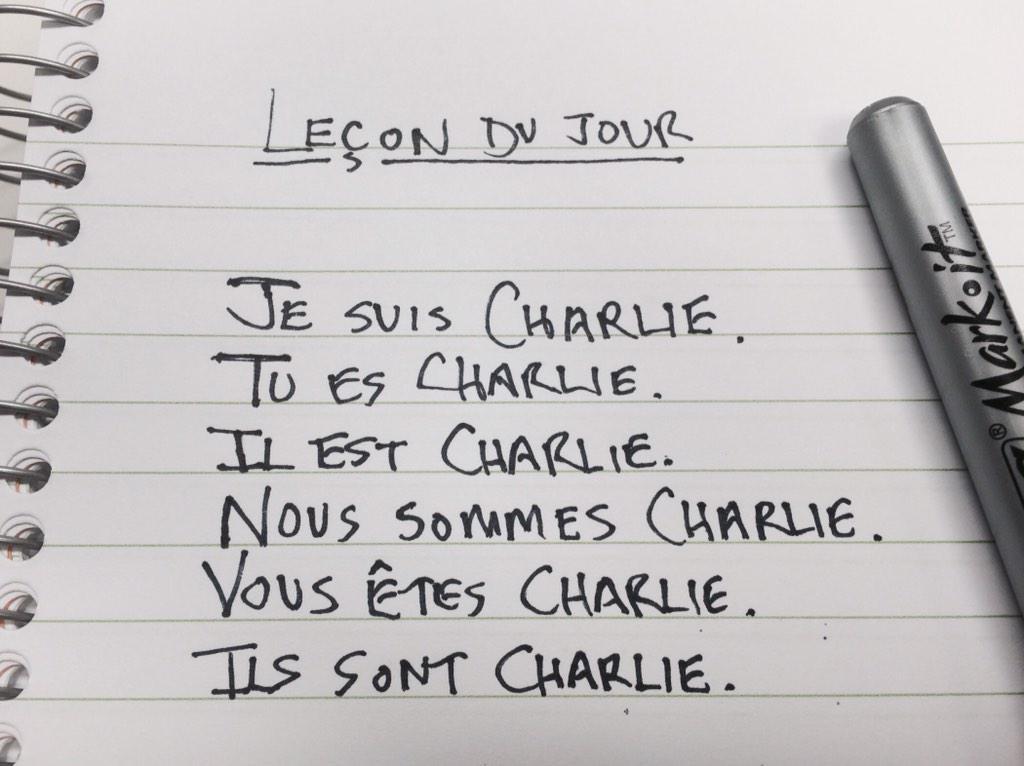 LEÇON DU JOUR
JE SUIS CHARLIE.
TU ES CHARLIE.
IL EST CHARLIE.
NOUS SOMMES CHARLIE.
VOUS ÊTES CHARLIE.
ILS SONT CHARLIE.
Markoit™
®